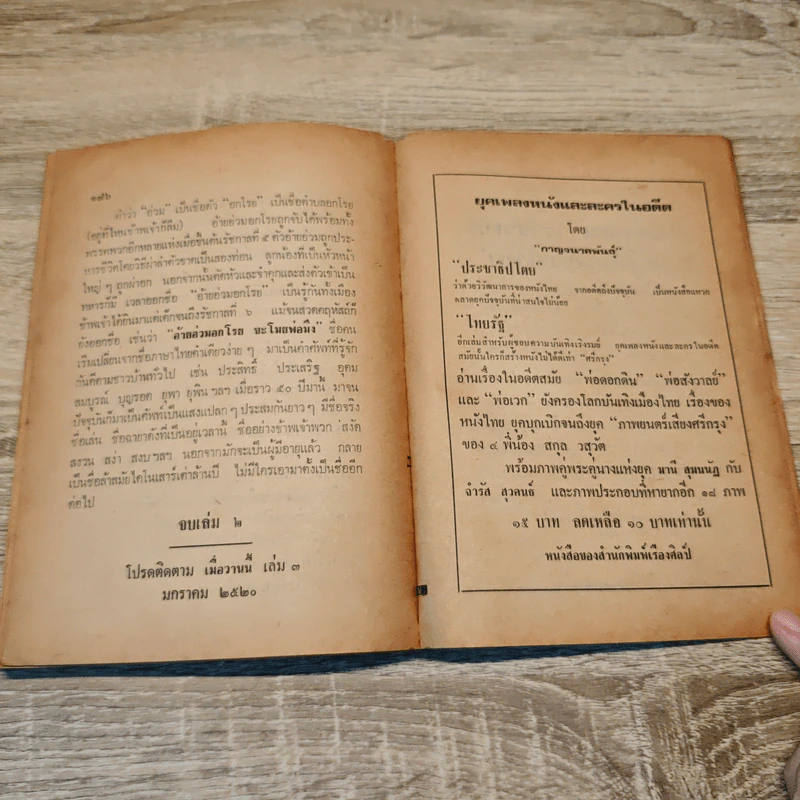 ๑๙๖
คำว่า "อ่วม" เป็นชื่อตัว "อกโรย" เป็นชื่อตำบลอกโรย
(อยู่ที่ไหนข้าพเจ้าก็ลืม) อ้ายอ่วมอกโรยถูกจับได้พร้อมทั้ง
พรรคพวกอีกหลายแห่งเมื่อขึ้นต้นรัชกาลที่ ๕ ตัวอ้ายอ่วมถูกประ-
หารชีวิตโดยวิธีผ่าลำตัวขาดเป็นสองท่อน ลูกน้องที่เป็นหัวหน้า
ใหญ่ ๆ ถูกผ่าอก นอกจากนั้นตัดหัวและจำคุกและส่งตัวเข้าเป็น
ทหารก็มี เวลาออกชื่อ "อ้ายอ่วมอกโรย" เป็นรู้กันทั้งเมือง
ข้าพเจ้าได้ยินมาแต่เด็กจนถึงรัชกาลที่ ๖ แม้จนสวดคฤหัสถ์ก็
ยังออกชื่อ เช่นว่า "อ้ายอ่วมอกโรย จะโมยพ่อมึง" ชื่อคน
เริ่มเปลี่ยนจากชื่อภาษาไทยคำเดียวง่าย ๆ มาเป็นคำศัพท์ที่รู้จัก
กันดีตามชาวบ้านทั่วไป เช่น ประสิทธิ์ ประเสริฐ อุดม
สมบูรณ์ บุญรอด ยุพา ยุพิน ฯลฯ เมื่อราว ๕๐ ปีมานี้ มาจน
ปัจจุบันก็มาเป็นศัพท์เป็นแสงแปลก ๆ ประสมกันยาว ๆ มีชื่อจริง
ชื่อเล่น ชื่อฉายาดังที่เป็นอยู่เวลานี้ ชื่ออย่างข้าพเจ้าพวก สงัด
สงวน สง่า สงบ ฯลฯ นอกจากมักจะเป็นผู้มีอายุแล้ว กลาย
เป็นชื่อล้าสมัยไดโนเสาร์เต่าล้านปี ไม่มีใครเอามาตั้งเป็นชื่ออีก
ต่อไป
จบเล่ม ๒
โปรดติดตาม เมื่อวานนี้ เล่ม ๓
มกราคม ๒๕๒๐
ยุคเพลงหนังและละครในอดีต
โดย
"กาญจนาคพันธุ์"
"ประชาธิปไตย"
ว่าด้วยวิวัฒนาการของหนังไทย จากอดีตถึงปัจจุบัน เป็นหนังสือแหวก
ตลาดยุคปัจจุบันที่น่าสนใจไม่น้อย
"ไทยรัฐ"
อีกเล่มสำหรับผู้ชอบความบันเทิงเริงรมย์ ยุคเพลงหนังและละครในอดีต
สมัยนั้นใครก็สร้างหนังไม่ได้ดีเท่า "ศรีกรุง"
อ่านเรื่องในอดีตสมัย "พ่อดอกดิน" "พ่อสังวาลย์"
และ "พ่อเวก" ยังครองโลกบันเทิงเมืองไทย เรื่องของ
หนังไทย ยุคบุกเบิกจนถึงยุค "ภาพยนตร์เสียงศรีกรุง"
ของ ๔ พี่น้อง สกุล วสุวัต
พร้อมภาพคู่พระคู่นางแห่งยุค มานี สุมนนัฏ กับ
จำรัส สุวคนธ์ และภาพประกอบที่หายากอีก ๑๘ ภาพ
๑๕ บาท ลดเหลือ ๑๐ บาทเท่านั้น
หนังสือของสำนักพิมพ์เรืองศิลป์